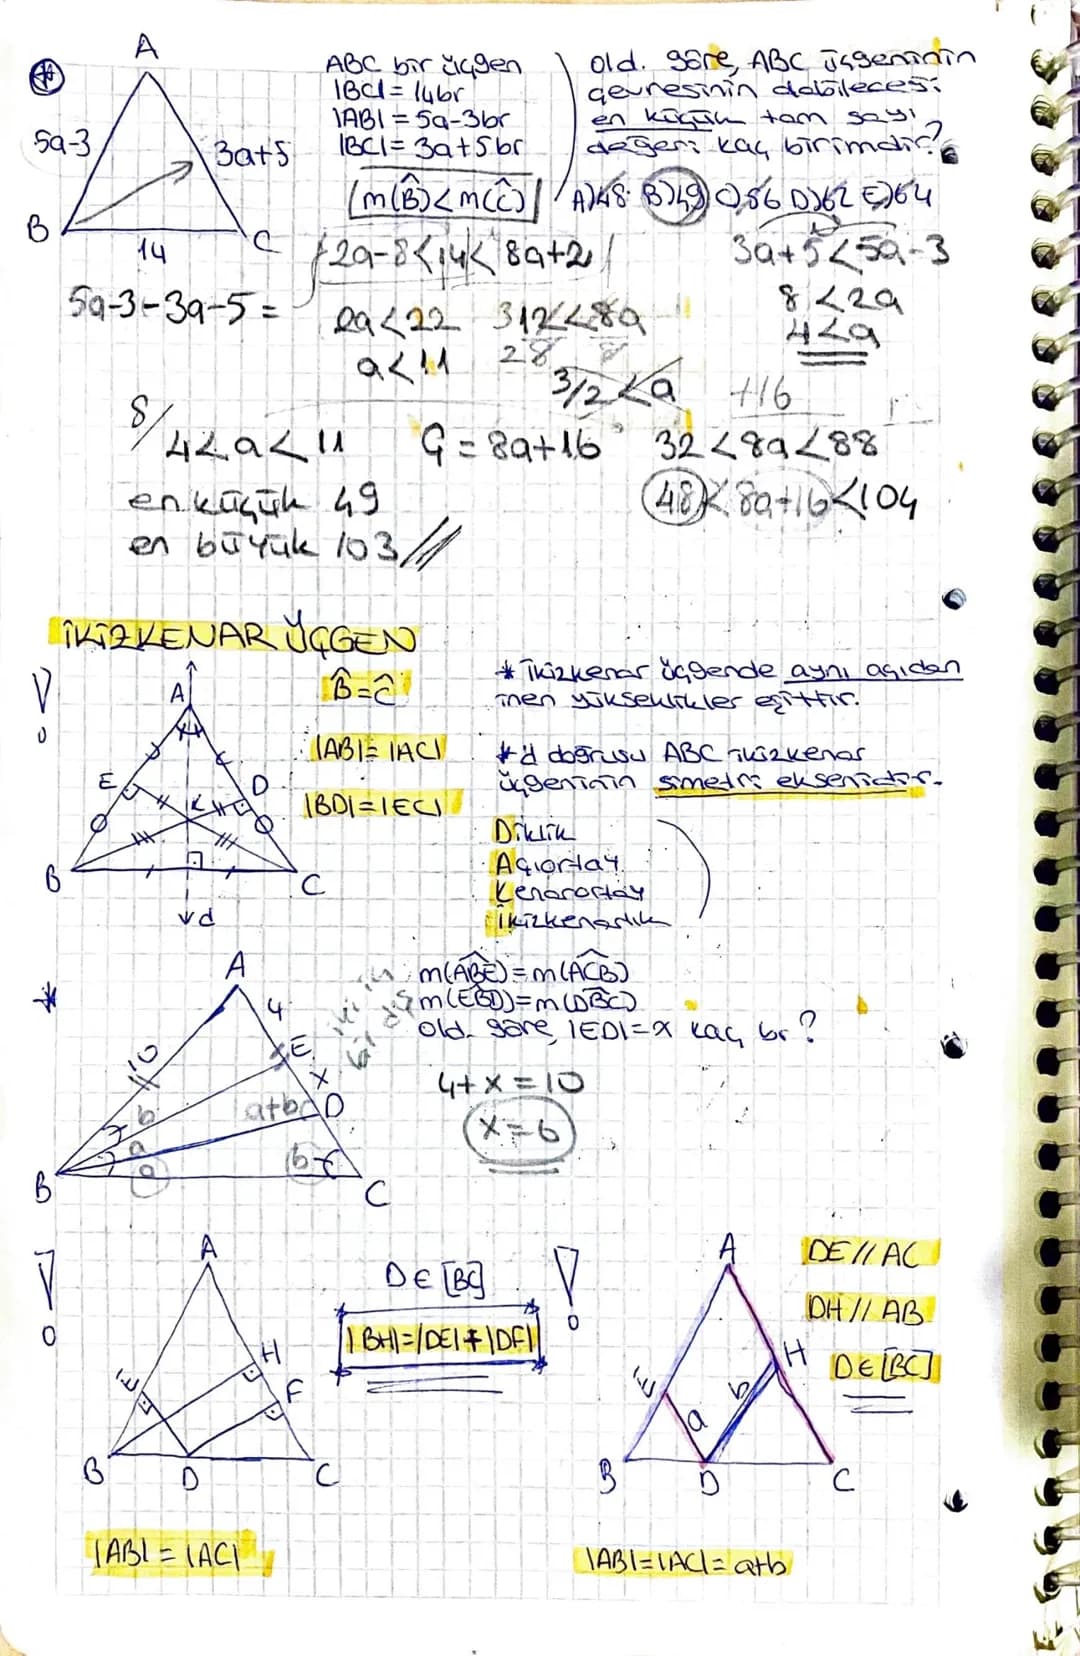 A
5a-3
3a+5
B
14
C
ABC bir üçgen
|BC|=14br
|AB|=5a-3br
|BC|=3a+5br
m(B̂)<m(Ĉ)
Old. göre, ABC üçgeninin
çevresinin alabileceği
en küçük tam sayı
değeri kaç birimdir?
A)48 B)49 C)56 D)62 E)64
2a-8<14<8a+2
3a+5<5a-3
5a-3-3a-5=
2a<22
8<2a
a<11
4<a
3/2<a
+16
8/
4<a<11
Ç=8a+16
32<8a<88
en küçük 49
48<8a+16<104
en büyük 103
İKİZKENAR ÜÇGEN
A
B̂=Ĉ
* İkizkenar üçgende aynı açıdan
inen yükseklikler eşittir.
|AB|=|AC|
* d doğrusu ABC ikizkenar
üçgeninin simetri eksenidir.
E
D
K
|BD|=|EC|
Diklik
Açıortay
Kenarortay
İkizkenarlık
B
C
d
* A
m(ABE)=m(ACB)
m(EBD)=m(DBC)
Old. göre, |ED|=x kaç br?
4
10
E
iki iç
bir dış
x
4+x=10
b
a+b
D
x=6
a
a
b
B
C
A
D∈[BC]
|BH|=|DE|+|DF|
H
E
F
B
D
C
|AB|=|AC|
A
DE//AC
DH//AB
H
D∈[BC]
E
a
b
B
D
C
|AB|=|AC|=a+b